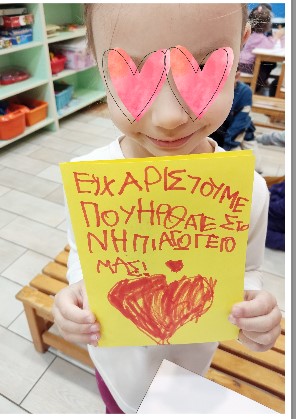 ΕΥΧΑΡΙΣΤΟΥΜΕ
ΠΟΥ ΗΡΘΑΤΕ ΣΤΟ
ΝΗΠΙΑΓΩΓΕΙΟ
ΜΑΣ!